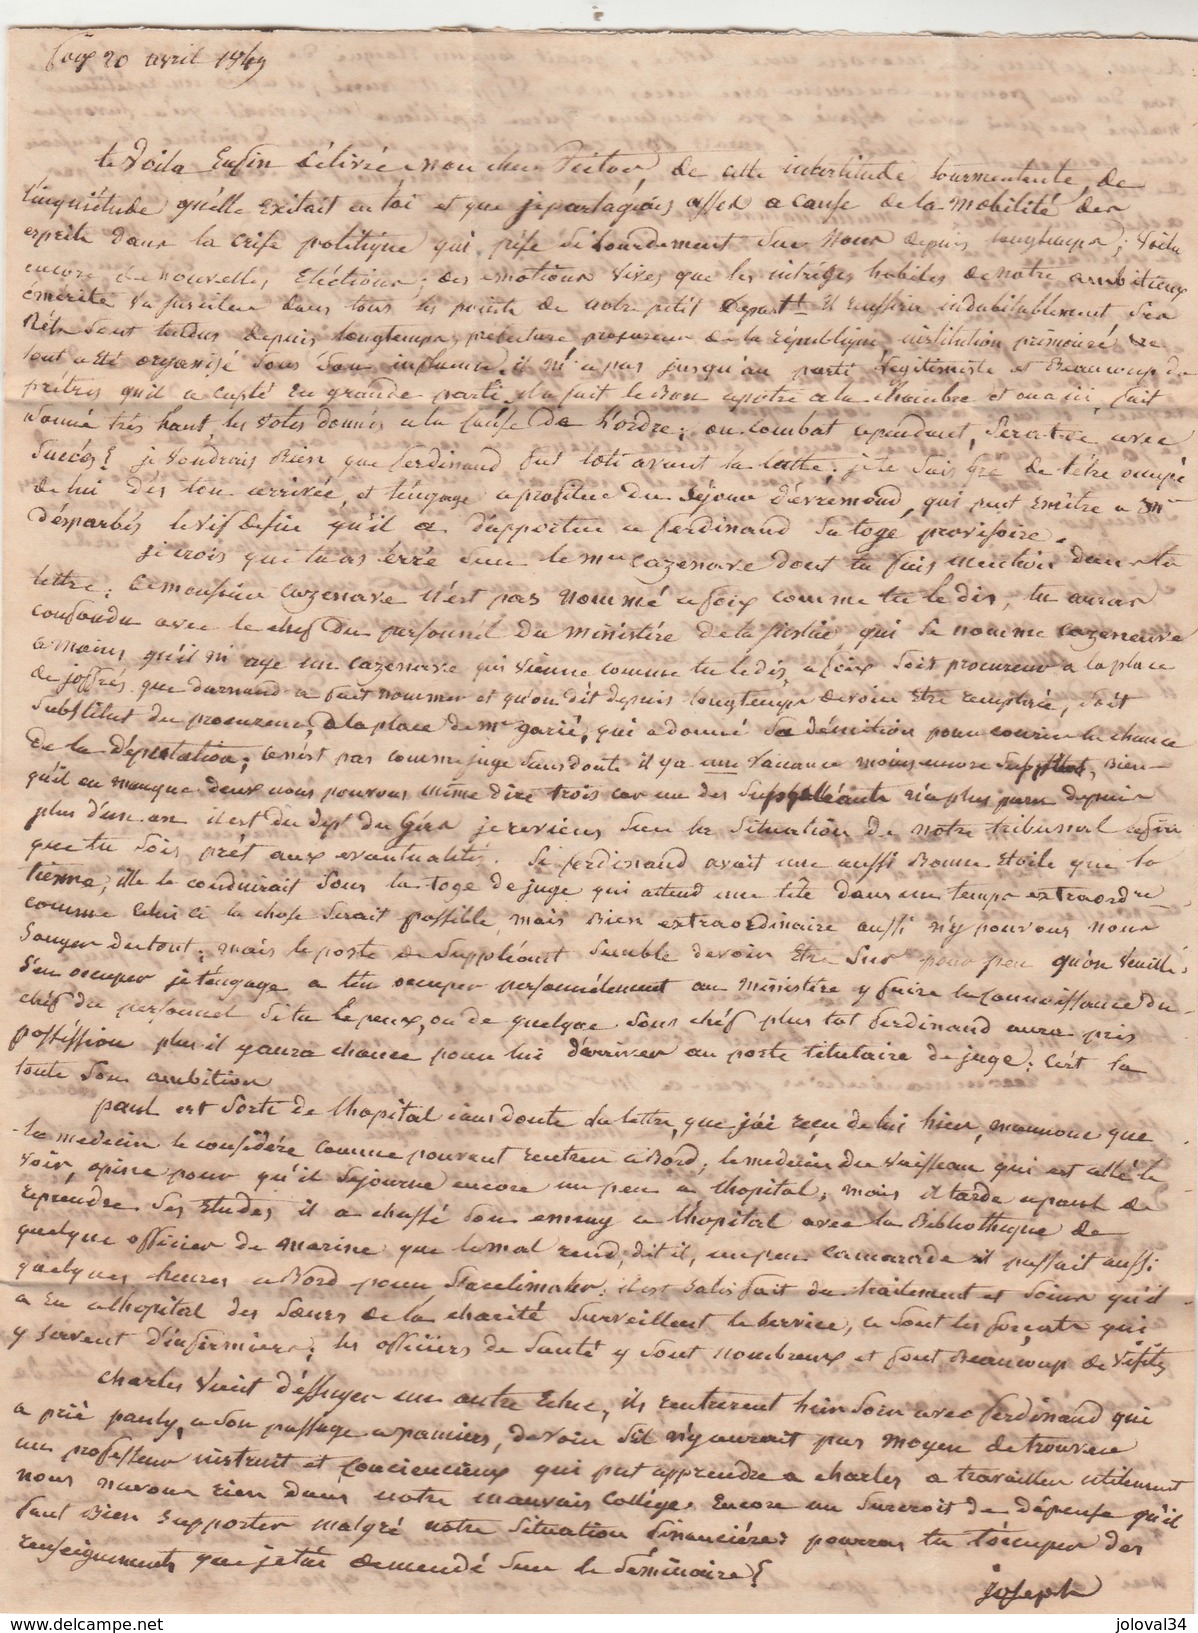 Foix 20 avril 1849
te Voila Enfin délivré mon cher Victor, de cette incertitude tourmentante, de
l'inquiétude qu'elle Exitait en toi et que je partageais assez a Cause de la Mobilité des
esprits dans la Crise politique qui pèse si lourdement Sur Nous depuis longtemps; Voila
encore de nouvelles Eléctions; des emotions Vives que les intrigues habiles de notre ambitieux
émerite Va susciter dans tous les points de notre petit Départt Il Réussira indubitablement Ses
filets Sont tendus depuis longtemps, préfecture procureur de la république, institution primaire
tout a eté organisé Sous Son influence, il n'i a pas jusqu'au parti légitimiste et Beaucoup de
prêtres qu'il a capté En grande partie. Il a fait le Bon apotre a la chambre et on a ici, fait
sonné très haut, les Votes donnés a la Cause De L'ordre; on Combat cependant, Sera-t-ce avec
Succès? je Voudrais Bien que ferdinand fut loti avant la lutte; je te Sais Gré de t'être occupé
de lui dès ton arrivée, et t'engage a profiter du Séjour d'évremond, qui peut Emettre a Mr
d'ésparbés le Vif desir qu'il a d'apporter a ferdinand Sa toge provisoire.
je crois que tu as érré Sur le Mr Cazenave dont tu fais mention dans ta
lettre; Ce monsieur Cazenave n'est pas Nommé a foix comme tu le dis, tu auras
confondu avec le chef du personnel Du Ministère De la Justice, qui Se nomme Cazeneuve
a moins qu'il n'i aye un Cazenave qui Vienne comme tu le dis, a foix Soit procureur a la place
de joffrés que darnaud a fait nommer et qu'on dit depuis longtemps devoir Etre remplacé, Soit
Substitut du procureur, a la place de Mr garié, qui a donné Sa démition pour courir la chance
De la députation; ce n'est pas comme juge Sans doute il y a une Vacance moins encore Suppléant, Bien
qu'il en manque deux nous pouvons même dire trois car un des Suppléants n'a plus paru depuis
plus d'un an il est du dept du Gers je reviens Sur la Situation de notre tribunal afin
que tu Sois prêt aux eventualités. Si ferdinand avait une aussi Bonne Etoile que la
tienne, elle le conduirait Sous la toge de juge qui attend une tête dans un temps extraordre
comme Celui ci la chose Serait possible, mais Bien extraordinaire aussi n'y pouvons nous
Songer du tout; mais le poste de Suppléant Semble devoir Etre Sur pour peu qu'on Veuille
S'en occuper je t'engage a t'en occuper personnélement au Ministère y faire la Connoissance du
chéf du personnel Si tu le peux, ou de quelque Sous chéf plus tot ferdinand aura pris
posséssion plus il y aura chance pour lui d'arriver au poste titulaire de juge; C'est la
toute Son ambition
paul est Sorti de l'hopital Sans doute Sa lettre, que j'ai reçu de lui hier, m'annonce que
le medecin le considére comme pouvant rentrer a Bord; le medecin du Vaisseau qui est allé le
Voir, opine pour qu'il Sejourne encore un peu a l'hopital; mais il tarde a paul de
reprendre Ses Etudes il a chassé Son ennuy a l'hopital avec la Bibliothéque de
quelque officier de marine que le mal rend, dit il, un peu camarade il passait aussi
quelques heures a Bord pour S'acclimater; il est Satisfait du traitement et Soins qu'il
a Eu a l'hopital des Sœurs de la charité Surveillent le Service, ce Sont les forçats qui
y Servent d'infirmiers; les officiers de Santé y Sont nombreux et font Beaucoup de Visites
charles Vient d'éssuyer un autre Echec, ils rentrerent hier Soir avec ferdinand qui
a prié pauly, a Son passage a pamiers, de voir S'il n'y aurait pas Moyen de trouver
un professeur instruit et Conciencieux qui put apprendre a charles a travailler utilement
nous n'avons rien dans notre mauvais Collége. Encore un Surcroit de dépense qu'il
faut Bien Supporter malgré notre Situation financiére; pourras tu t'occuper des
renseignements que je t'ai demandé Sur le Séminaire?
joseph
joloval34